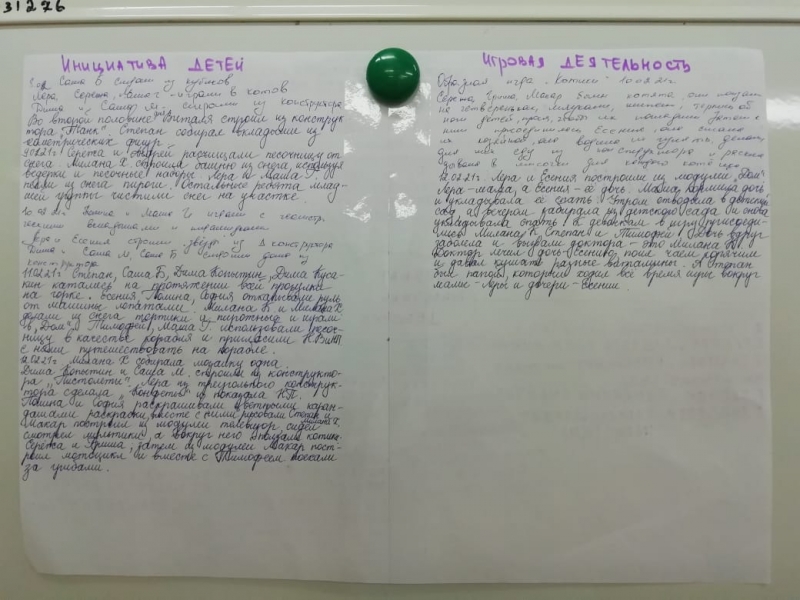 31276
ИНИЦИАТИВА ДЕТЕЙ
Саша Б строит из кубиков
Лера, Сережа, играли в котов
Дима и Саша М. строили из конструктора
Во второй половине дня Виталя строил из конструк
тора "Танк". Степан собирал вкладыши из
геометрических фигур.
9.02.21г Сережа и Андрей расчищали песочницу от
снега. Милана Х строили башню из снега, используя
ведерки и песочные наборы. Лера и Маша Г.
пекли из снега пироги. Остальные ребята млад-
шей группы чистили снег на участке
10.02.21г и Маша Г играют с геометр.
ческими вкладышами и
Лера и Есения строили звезду из конструктора
Саша М, Саша Б строили дома из
конструктора
11.02.21г Степан, Саша Б, Дима Копытин, Дима Куса-
кин катались на протяжении всей прогулки
на горке. Есения, Полина, София откапывали руль
от машины лопатами. Милана К. и Милана Х
делали из снега тортики и пирожные и играли
в "Дом". Тимофей, Маша Г. использовали песоч-
ницу в качестве корабля и пригласили
с ними путешествовать на корабле.
12.02.21г Милана Х собирала мозаику одна.
Дима Копытин и Саша М. строили из конструкто-
ра "Пистолеты". Лера из треугольного конструк-
тора сделала "конфеты" и показала Н.П.
Полина и София раскрашивали цветными каран-
дашами раскраски вместе с ними рисовали Степан и
Милана К.
Макар построил из модулей телевизор, сидел
смотрел мультики, а вокруг него ползали котики
Сережа и Гриша; затем из модулей Макар пост-
роил мотоцикл и вместе с Тимофеем поехали
за грибами.
ИГРОВАЯ ДЕЯТЕЛЬНОСТЬ
игра "Котики" 10.02.21г.
Сережа, Гриша, Макар были котята, они ползали
на четвереньках, мяукали,
детей,
ним присоединилась Есения, она стала
их хозяйкой, она водила их гулять, делала
для них еду из конструктора и
для каждого котенка.
12.02.21г. Лера и Есения построили из модулей "Дом"
Лера-мама, а Есения - её дочь. Мама кормила дочь
и укладывала ее спать. Утром отводила в детский
сад, а вечером забирала из детского сада и снова
укладывала спать. К девочкам в игру присоеди-
нились Милана К, Степан и Тимофей. Дочь вдруг
заболела и вызвали доктора - это Милана К.
Доктор лечил дочь Есению, поил чаем горячим
и давал кушать разные витамины. А Степан
был папой, который ходил все время игры вокруг
мамы - Леры и дочери - Есении.